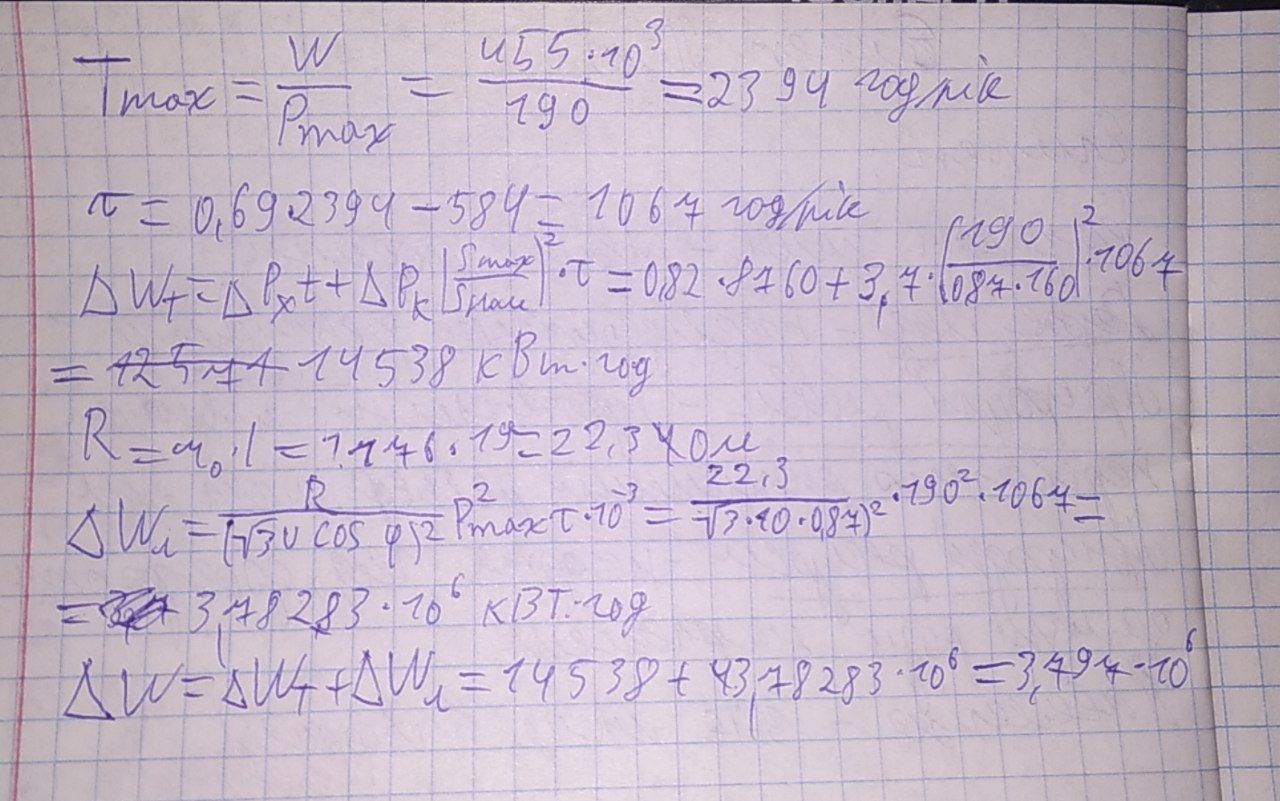 Tmax = W/Pmax = 455·10³/190 = 2394 год/рік
τ = 0,69·2394 - 584 = 1067 год/рік
ΔWт = ΔPx t + ΔPк (Smax/Sном)² · τ = 0,82·8760 + 3,7·(190/087·160)² · 1067
= 14538 кВт·год
R = r₀·l = 1.176·19 = 22,34 Ом
ΔWл = R/(√3 U cos φ)² P²max τ·10⁻³ = 22,3/√3·10·0,87)² · 190²·1067 =
= 3,78283·10⁶ кВт·год
ΔW = ΔWт + ΔWл = 14538 + 43,78283·10⁶ = 3,797·10⁶